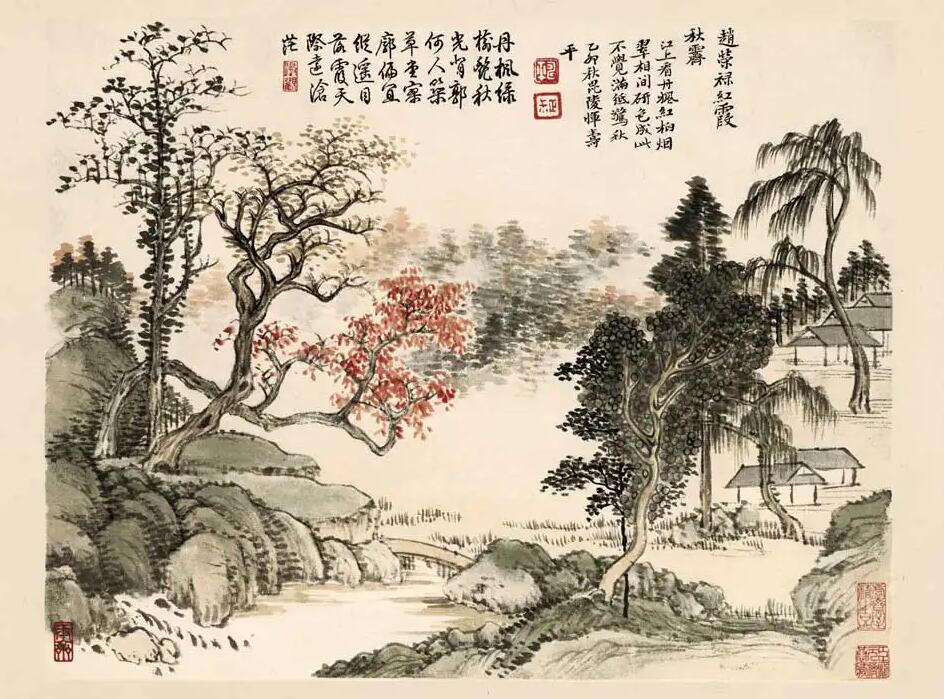 趙榮祿紅霞
秋霽
江上看丹楓紅桕烟
翠相間研色成此
不覺滿紙驚秋
乙卯秋毘陵惲壽
平
丹楓綠
樹艷秋
光背郭
何人築
草堂寥
廓偏宜
縱遙目
落霞天
際遠滄
茫